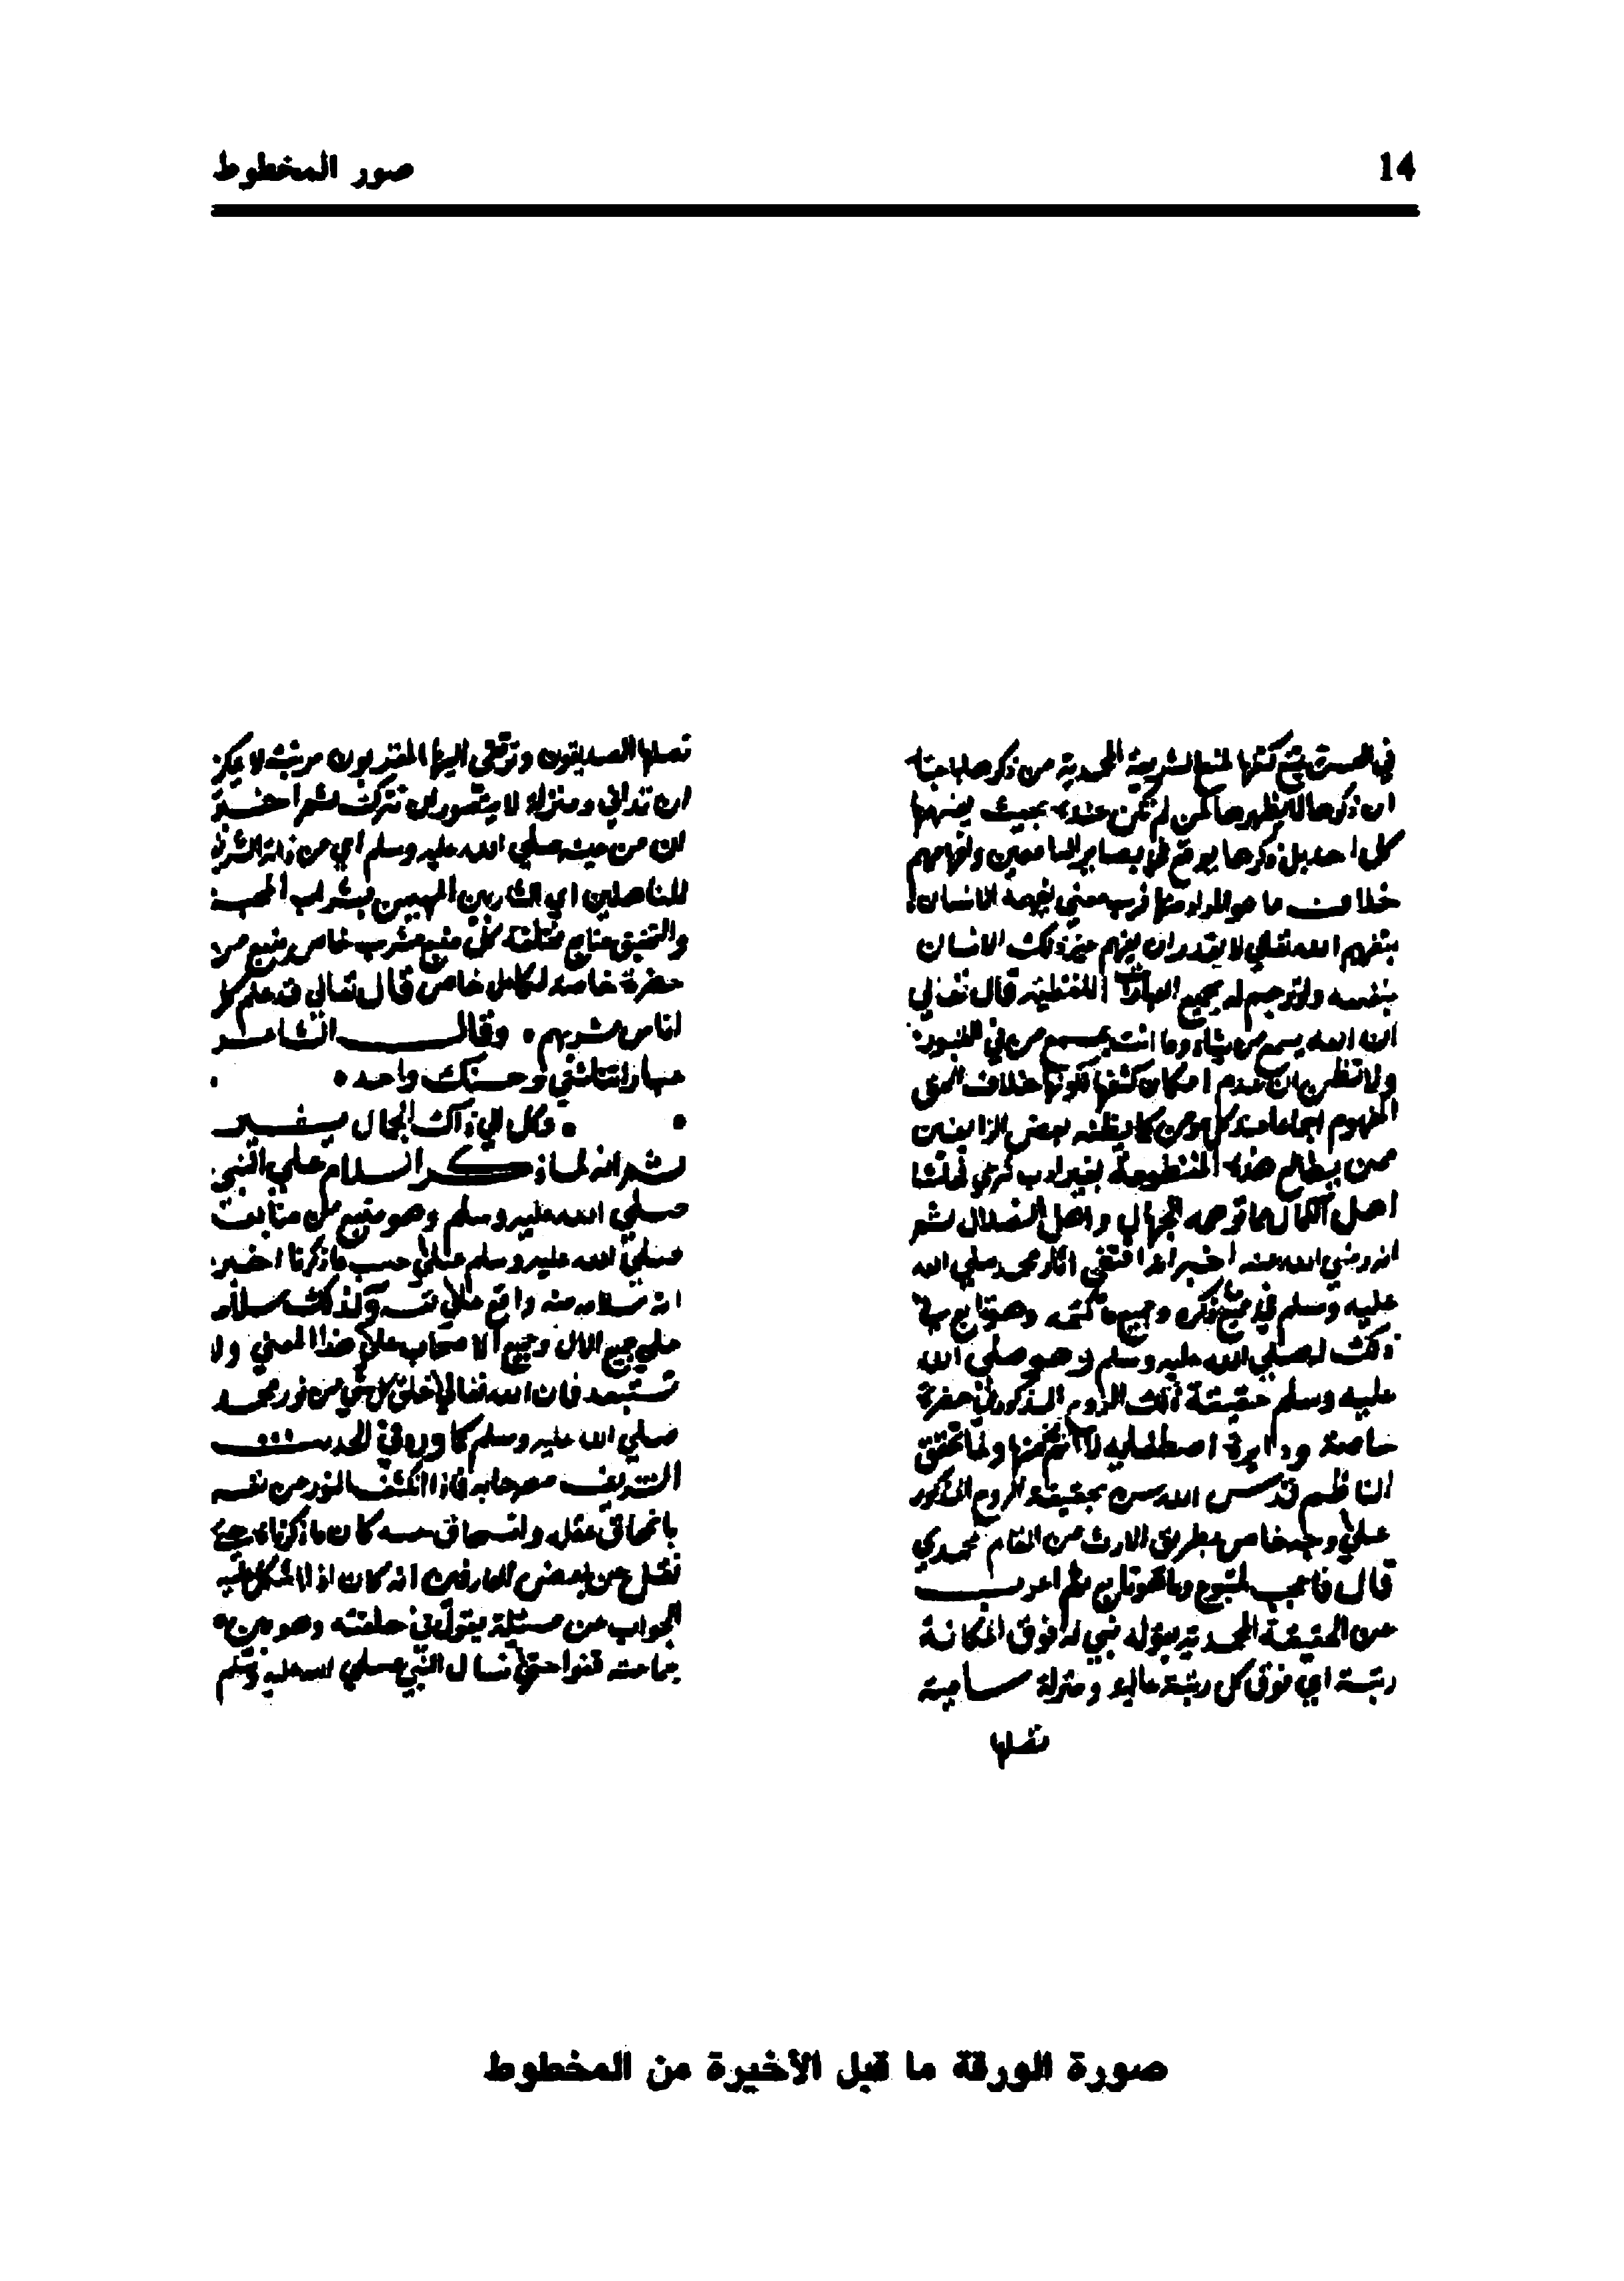 14
صور المخطوط
في الصمت كتمها لمنع الشريعة المحمدية من ذكرها
ان ذكرها لا يظهرها لمن لم تكن عنده بحيث يفهمها
كل احد بل ذكرها يوقع في بصاير السامعين وافهامهم
خلاف ما هو المراد منها فرب معنى يفهمه الانسان
بتفهيم الله تعالى لا يقدر ان يفهم غير ذلك الانسان
بنفسه ولو ترجم له بجميع العبارات اللفظية قال تعالى
ان الله يسمع من يشاء وما انت بمسمع من في القبور
ولا تظن ان عدم امكان كشفها لكونها خلاف
المفهوم عند كل مومن كما يظنه بعض الزايغين
ممن يطالع هذه المنظومة بغير ادب
اهل الكمال مما توهمه الجهال واهل الضلال ثم
انه رضي الله عنه اخبر انه اقتفى اثار محمد صلى الله
عليه وسلم في جميع ما ذكره وجميع ما كتمه وهو تابع
ذلك له صلى الله عليه وسلم وهو صلى الله
عليه وسلم حقيقة ذلك الروم المذكور في حضرة
خاصة ودايرة اصطفايه ولما تحقق
الناظم قدس الله سره بحقيقة الروم المذكور
على وجه خاص بطريق الارث من المقام المحمدي
قال فاعجب لمتبوع وما هو تابع ثم اعرب
عن الحقيقة المحمدية بقوله نبي له فوق المكانة
رتبة اي فوق كل رتبة عالية ومنزلة سامية
تصلها
تصلها الصديقون وترقى اليها المقربون مرتبة لا يمكن
ان تدانى ومنزلة لا يتصور ان تترك ثم اخبر
ان من عينه صلى الله عليه وسلم اي من ذاته الشريفة
للناهلين اي الشاربين المهيمين بشراب المحبة
والتحقيق منابع مختلفة كل منبع مشرب خاص ينبع من
حضرة خاصة لكامل خاص قال تعالى قد علم كل
اناس مشربهم وقال الشاعر
عباراتنا شتى وحسنك واحد
وكل الى ذاك الجمال يشير
ثم انه لما ذكر السلام على النبي
صلى الله عليه وسلم وهو منبع من متابعته
صلى الله عليه وسلم على حسب ما ذكرنا اخبر
ان سلامه منه واقع على نفسه وكذلك سلامه
على جميع الال وجميع الاصحاب على هذا المعنى ولا
تستبعد فان الله تعالى خلق كل شي من نور محمد
صلى الله عليه وسلم كما ورد في الحديث
الشريف فاذا انكشف النور من نفسه
بانمحاق عقله وانسحاق حسه كان ما ذكرناه
نقل عن بعض العارفين انه كان اذا اشكل عليه
الجواب عن مسئلة يقول في حلقته وهو بين
جماعته قفوا حتى نسال النبي صلى الله عليه وسلم
صورة الورقة ما قبل الأخيرة من المخطوط